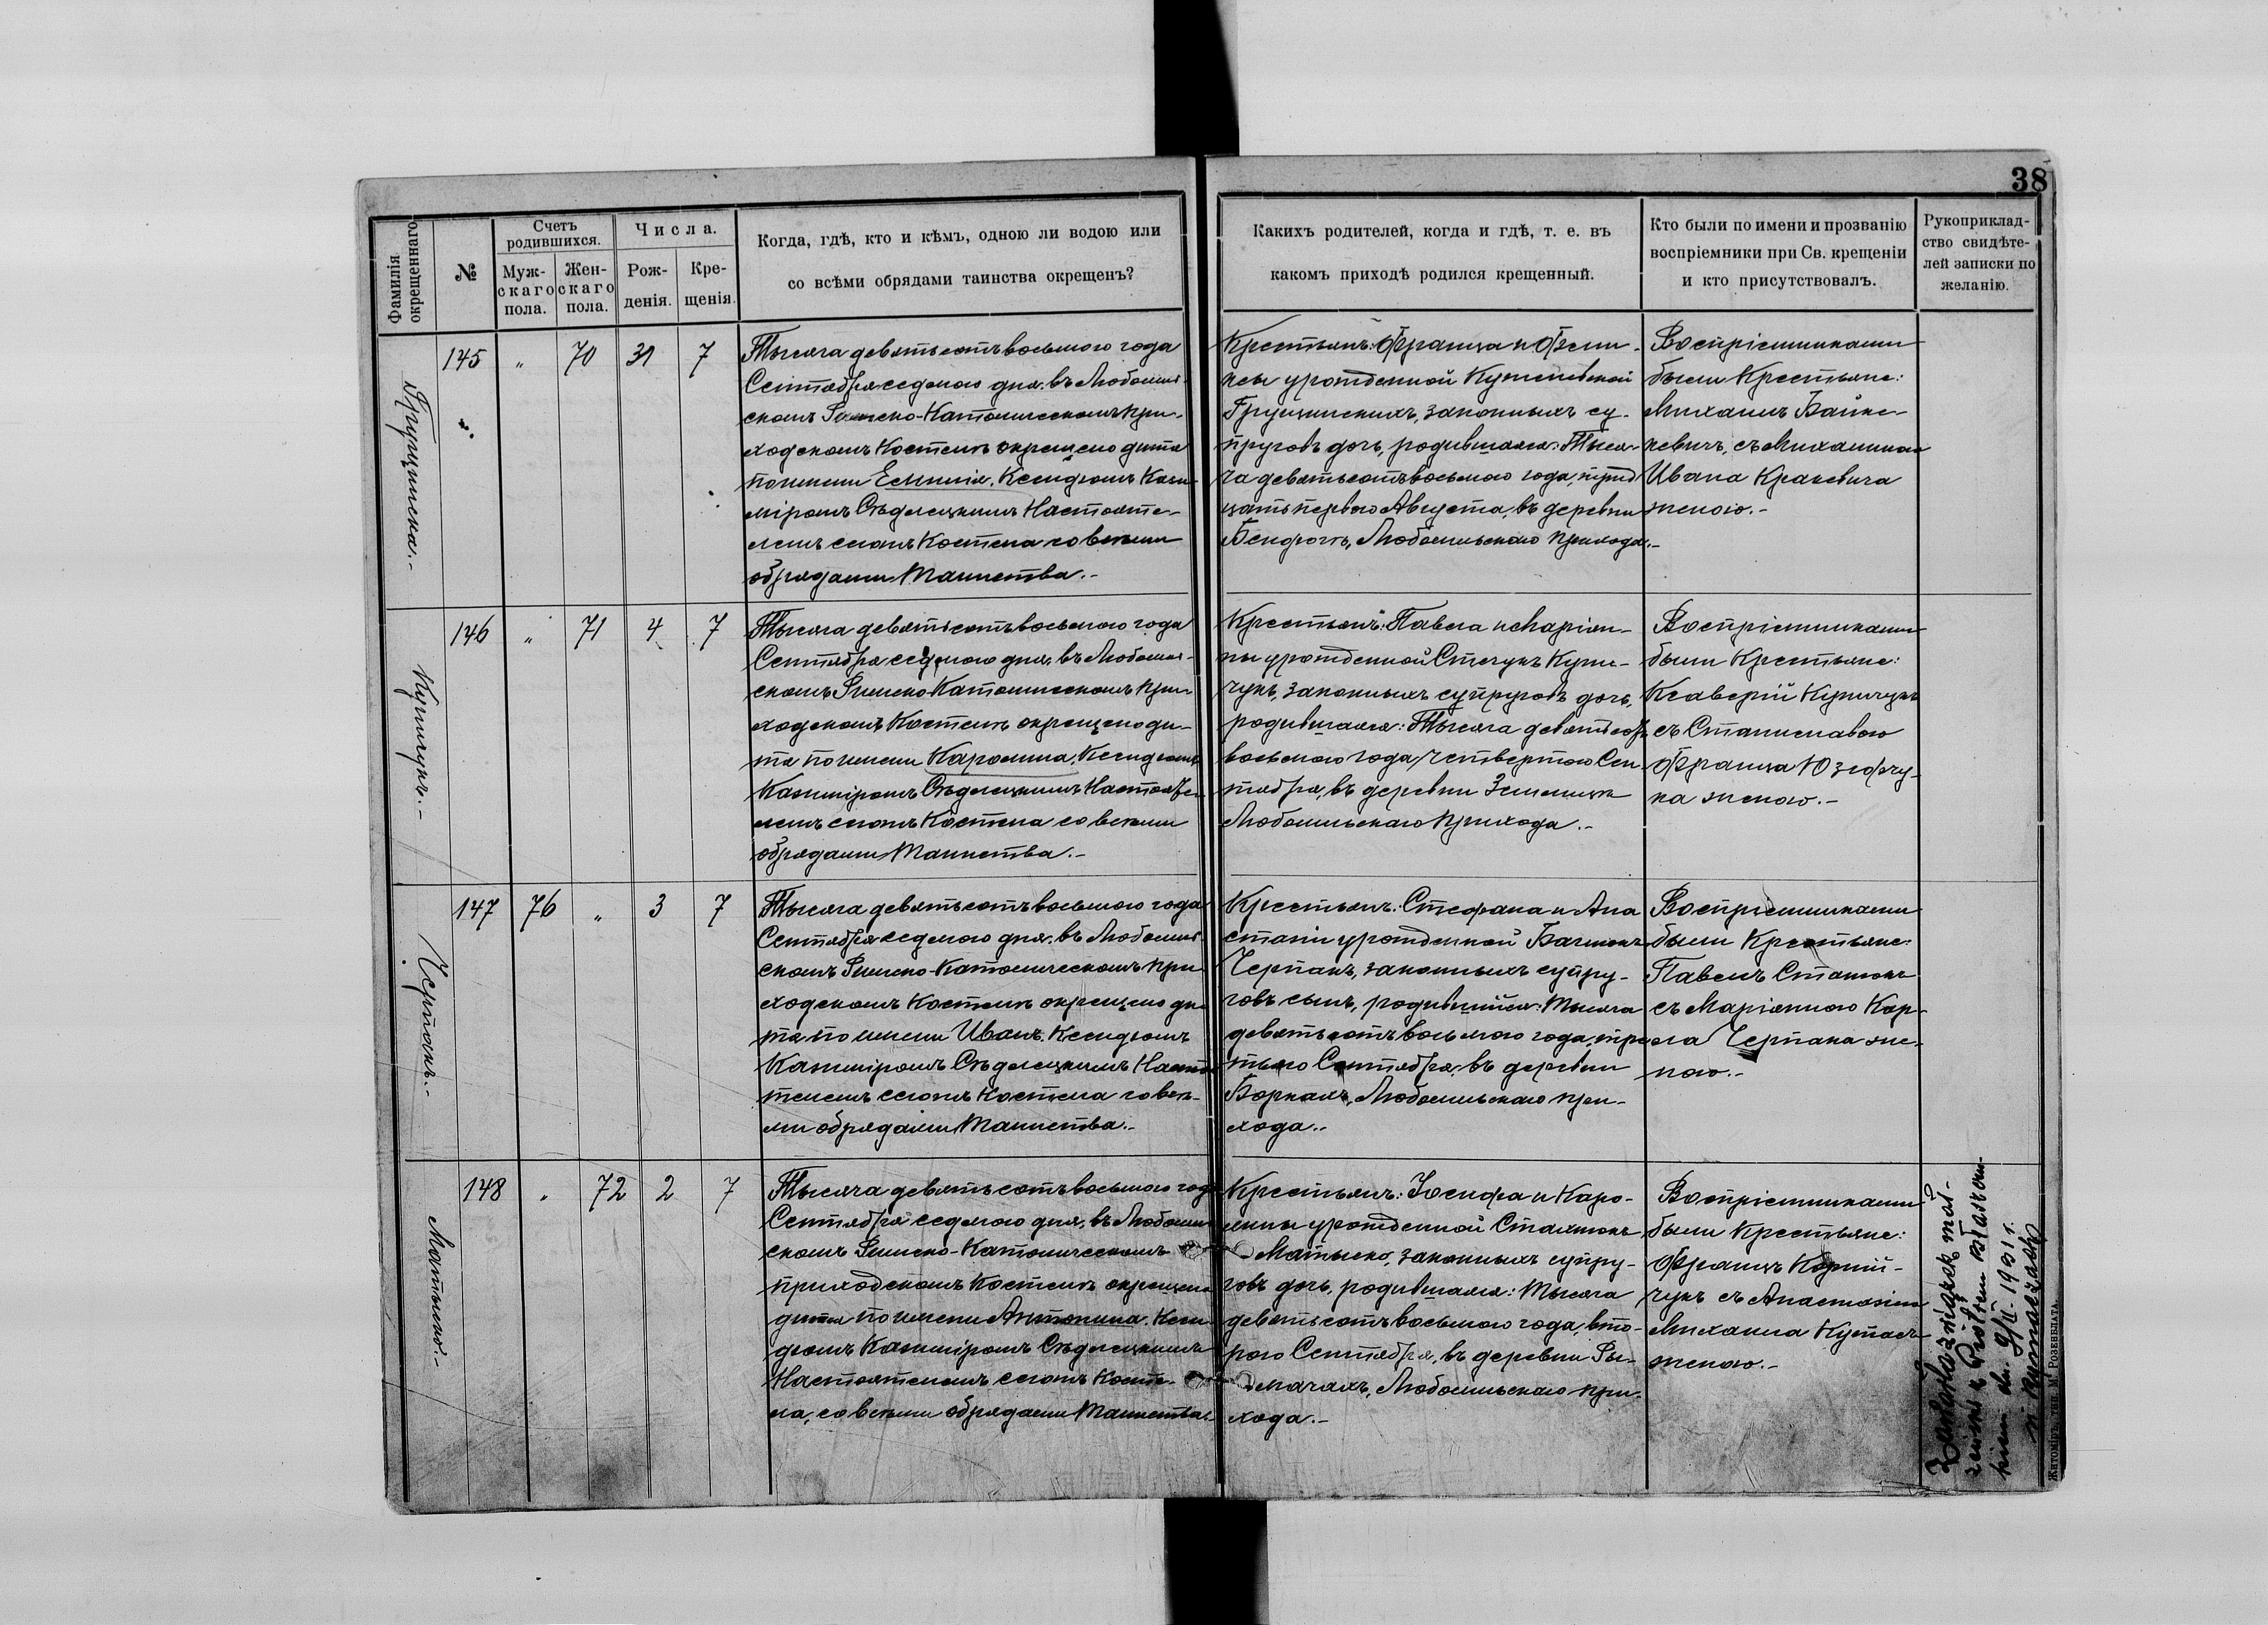 38
Фамилія окрещеннаго
№
Счетъ родившихся.
Муж-
скаго
пола.
Жен-
скаго
пола.
Числа.
Рож-
денія.
Кре-
щенія.
Когда, гдѣ, кто и кѣмъ, одною ли водою или
со всѣми обрядами таинства окрещенъ?
Какихъ родителей, когда и гдѣ, т. е. въ
какомъ приходѣ родился крещенный.
Кто были по имени и прозванію
воспріемники при Св. крещеніи
и кто присутствовалъ.
Рукоприклад-
ство свидѣте-
лей записки по
желанію.
Грущинска.-
145 " 70 31 7
Тысяча девятьсотъ восьмого года
Сентября седмого дня, въ Любомль-
скомъ Римско-Католическомъ При-
ходскомъ Костелѣ окрещено дитя
по имени Ксендзомъ Кази-
міромъ Сѣдлецкимъ Настояте-
лемъ сегожъ Костела со всѣми
обрядами Таинства.-
Крестьянъ: Франца и Фели-
ксы урожденной
Грущинскихъ, законныхъ су-
пруговъ дочь, родившаяся: Тыся-
ча девятьсотъ восьмого года, трид
цать перваго Августа, въ деревни
Любомльскаго прихода.-
Воспріемниками
были Крестьяне:
Михаилъ
съ Михалиною
Ивана Кракевича
женою.-
Купичукъ.-
146 " 71 4 7
Тысяча девятьсотъ восьмого года
Сентября седмого дня, въ Любомль-
скомъ Римско-Католическомъ При-
ходскомъ Костелѣ окрещено ди-
тя по имени Каролина, Ксендзомъ
Казиміромъ Сѣдлецкимъ Настояте-
лемъ сегожъ Костела со всѣми
обрядами Таинства.-
Крестьянъ: Павла и Маріан-
ны урожденной Стечукъ Купи-
чукъ, законныхъ супруговъ дочь,
родившаяся: Тысяча девятьсотъ
восьмого года, четвертого Сен-
тября, въ деревни Землица
Любомльскаго Прихода.-
Воспріемниками
были Крестьяне:
Ксаверій Купичукъ
съ Станиславою
Франца Юзефчу-
ка женою.-
Черпакъ.-
147 76 " 3 7
Тысяча девятьсотъ восьмого года
Сентября седмого дня, въ Любомль-
скомъ Римско-Католическомъ При-
ходскомъ Костелѣ окрещено ди-
тя по имени Иванъ, Ксендзомъ
Казиміромъ Сѣдлецкимъ Настоя-
телемъ сегожъ Костела со всѣ-
ми обрядами Таинства.-
Крестьянъ: Стефана и Ана
стасіи урожденной
Черпакъ, законныхъ супру-
говъ сынъ, родившійся: Тысяча
девятьсотъ восьмого года, тре
тьяго Сентября, въ деревни
Боркахъ, Любомльскаго при-
хода.-
Воспріемниками
были Крестьяне:
Павелъ
съ Маріанною Кар-
ола Черпака же-
ною.-
Матыско.-
148 " 72 2 7
Тысяча девятьсотъ восьмого года
Сентября седмого дня, въ Любомль-
скомъ Римско-Католическомъ
приходскомъ Костелѣ окрещено
дитя по имени Антонина, Ксен-
дзомъ Казиміромъ Сѣдлецкимъ
Настоятелемъ сегожъ Косте-
ла, со всѣми обрядами Таинства.-
Крестьянъ: Іосифа и Каро-
лины урожденной
Матыско, законныхъ супру-
говъ дочь, родившаяся: Тысяча
девятьсотъ восьмого года, вто-
рого Сентября, въ деревни Ры-
мачахъ, Любомльскаго при-
хода.-
Воспріемниками
были Крестьяне:
Францъ Корній-
чукъ съ Анастазіею
Михаила
женою.-
związek mał-
żeński z Piotrem
dn. 9/II-1931 r.
Житоміръ, тип. М. Розенблата.